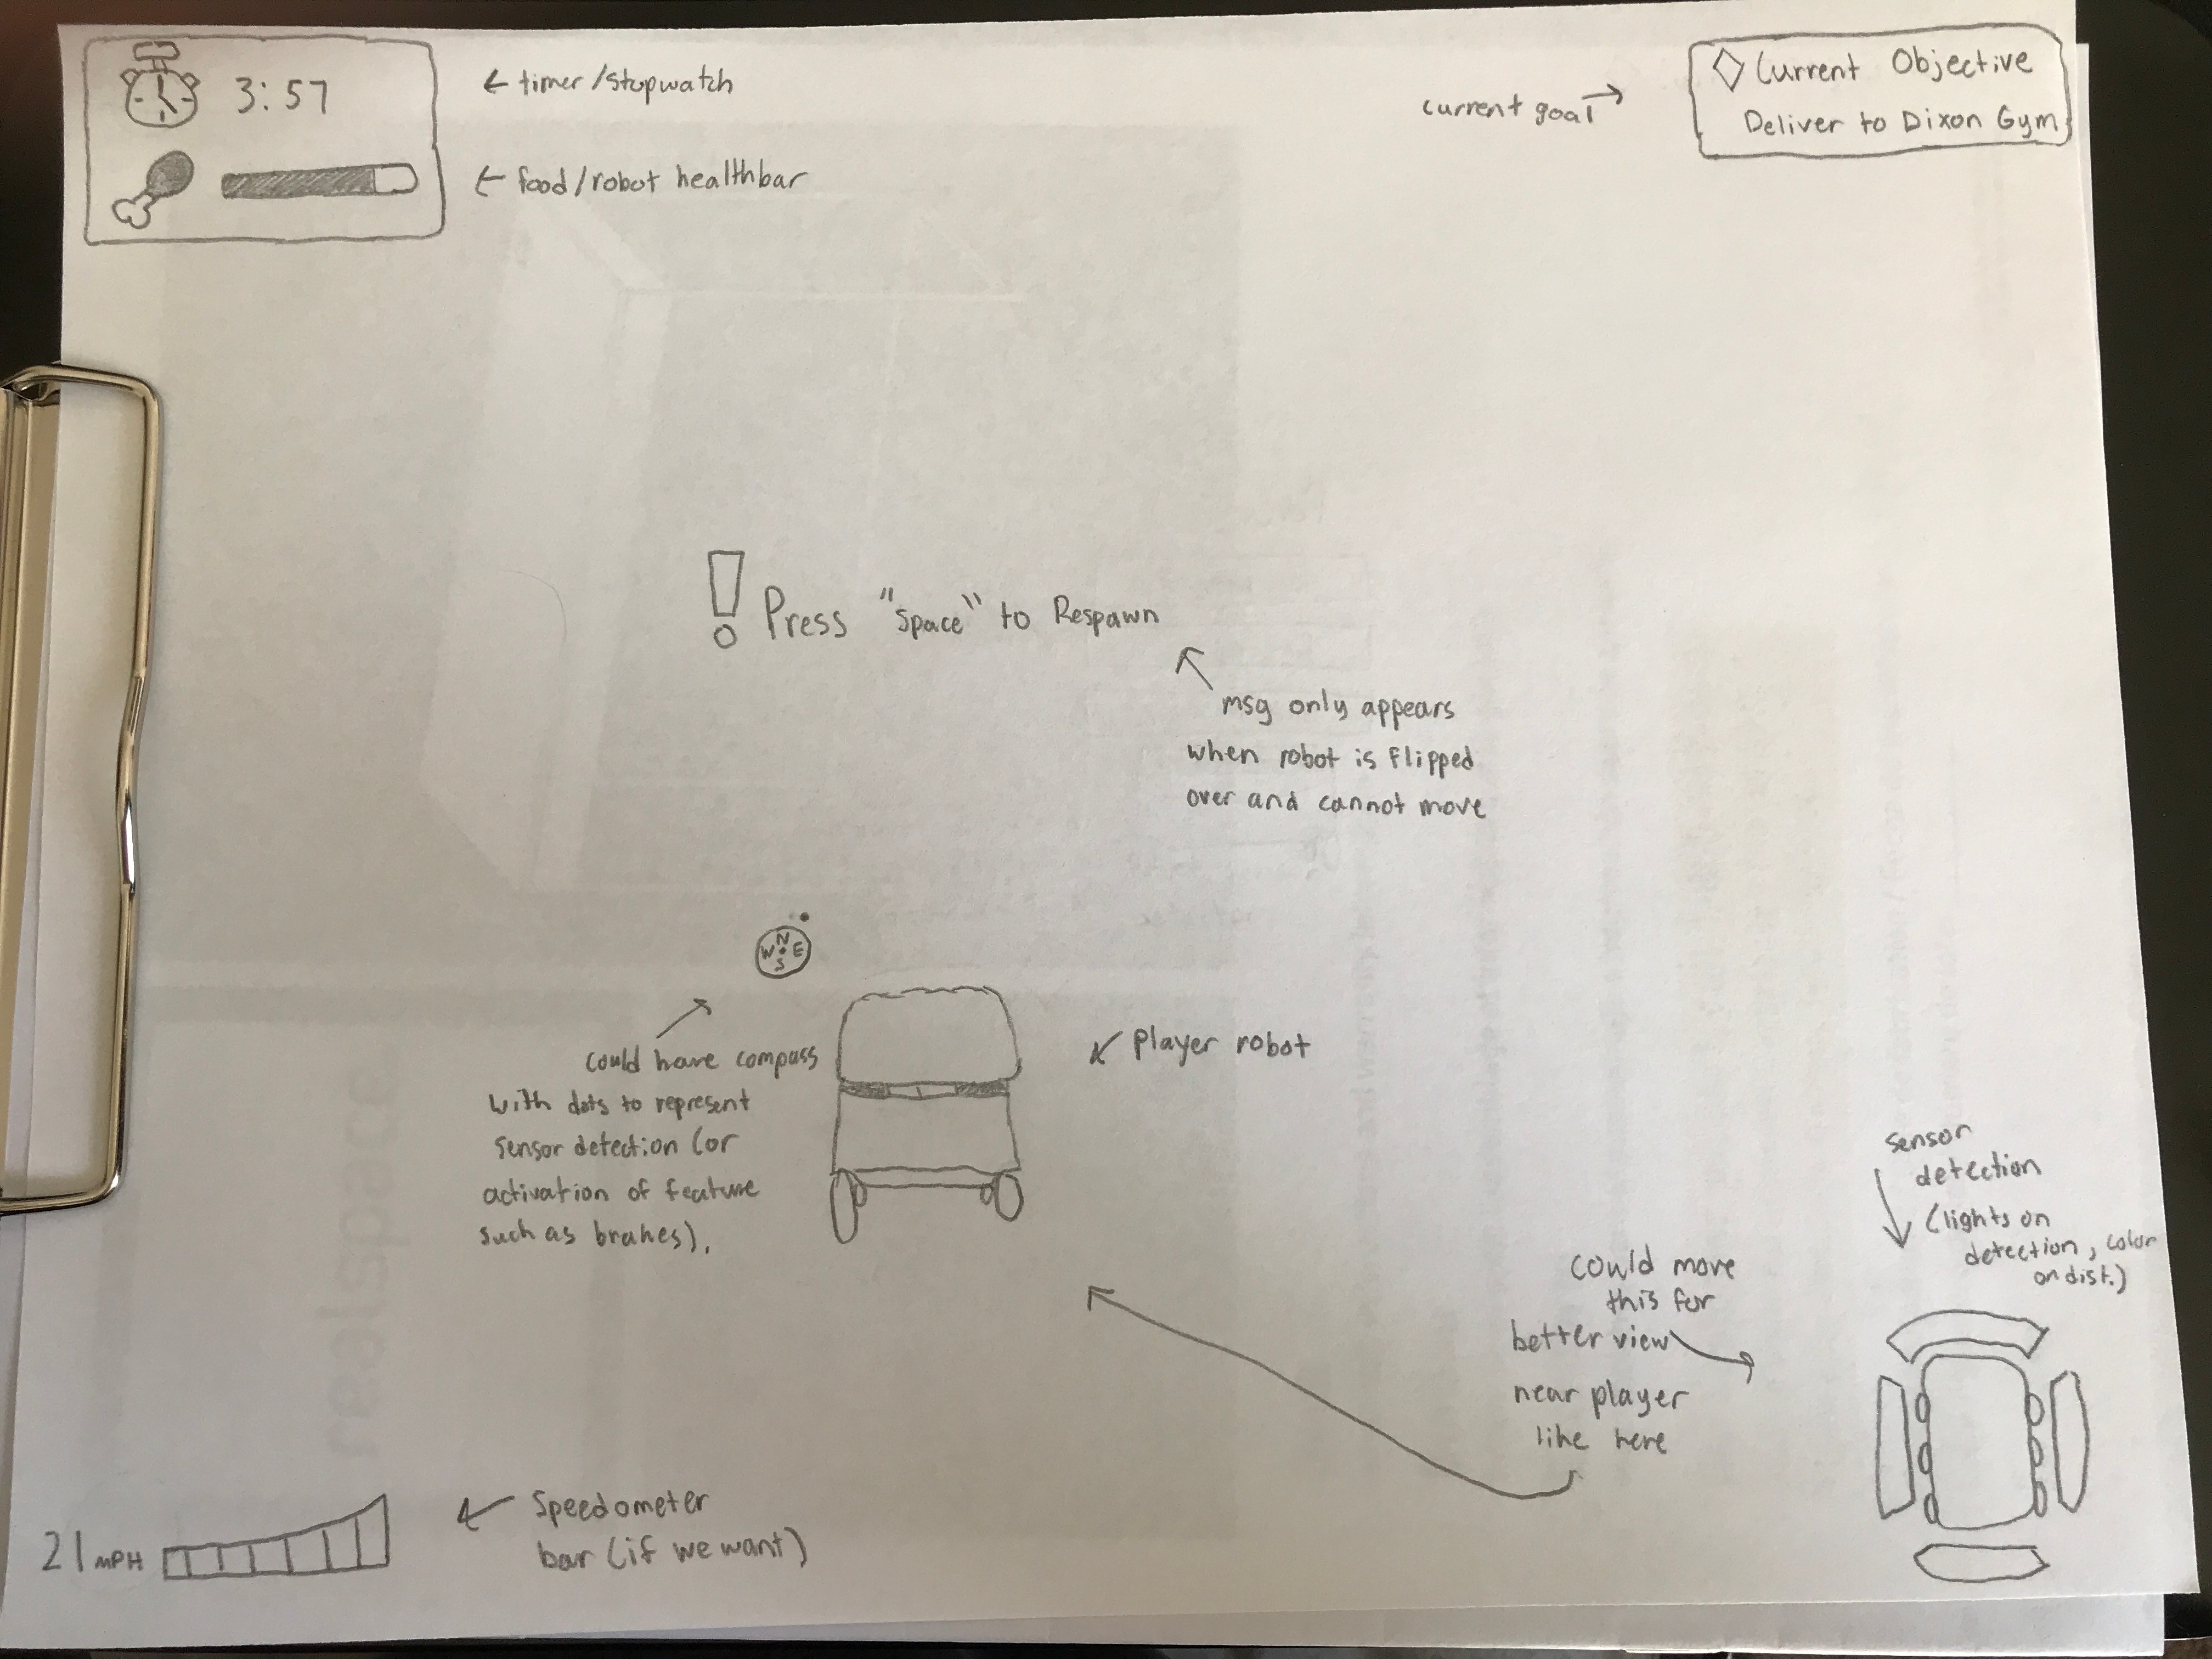 3:57
← timer/stopwatch
← food/robot healthbar
current goal →
◇ Current Objective
Deliver to Dixon Gym
! Press "Space" to Respawn
msg only appears
when robot is flipped
over and cannot move
N
W E
S
could have compass
with dots to represent
sensor detection (or
activation of feature
such as brakes).
Player robot
sensor
detection
(lights on
detection, color
on dist.)
could move
this for
better view
near player
like here
21 MPH
← Speedometer
bar (if we want)